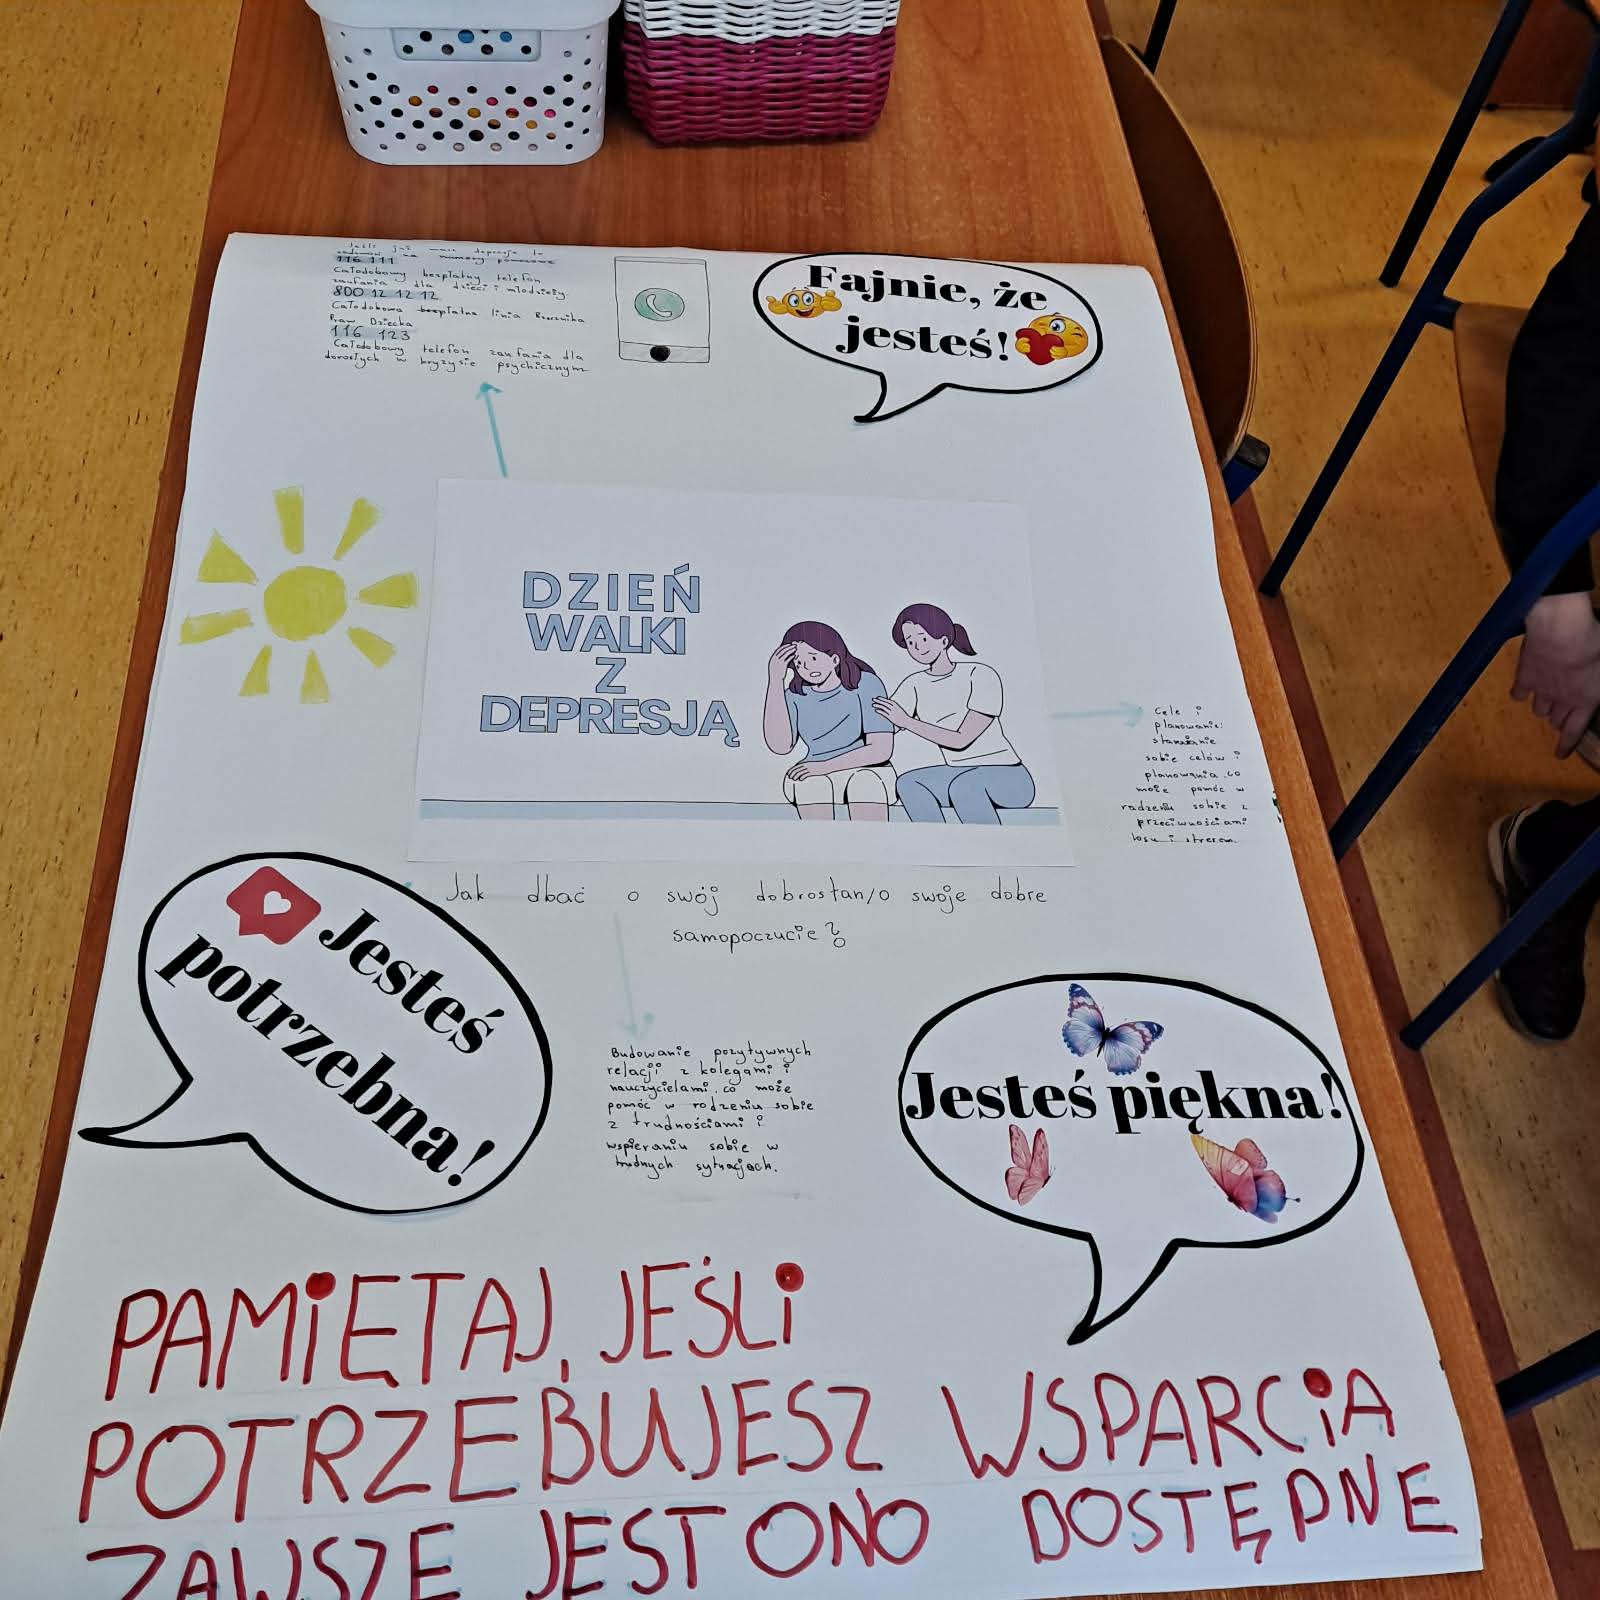 Jeśli już masz depresję to
zadzwoń na numery pomocowe
116 111
Całodobowy bezpłatny telefon
zaufania dla dzieci i młodzieży.
800 12 12 12
Całodobowa bezpłatna linia Rzecznika
Praw Dziecka
116 123
Całodobowy telefon zaufania dla
dorosłych w kryzysie psychicznym
Fajnie, że
jesteś!
DZIEŃ
WALKI
Z
DEPRESJĄ
Cele i
planowanie:
stawianie
sobie celów i
planowania, co
może pomóc w
radzeniu sobie z
przeciwnościami
losu i stresem.
Jak dbać o swój dobrostan/o swoje dobre
samopoczucie?
Jesteś
potrzebna!
Budowanie pozytywnych
relacji z kolegami i
nauczycielami, co może
pomóc w radzeniu sobie
z trudnościami i
wspieraniu sobie w
trudnych sytuacjach.
Jesteś piękna!
PAMIĘTAJ, JEŚLI
POTRZEBUJESZ WSPARCIA
ZAWSZE JEST ONO DOSTĘPNE